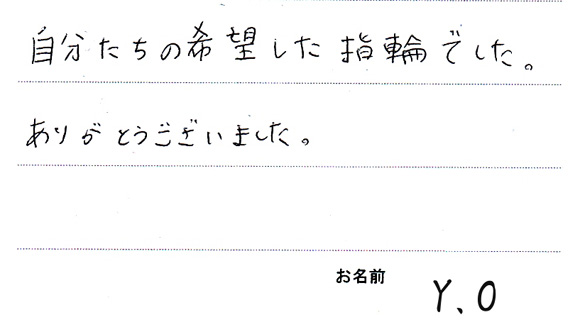 自分たちの希望した指輪でした。
ありがとうございました。
お名前 Y.O